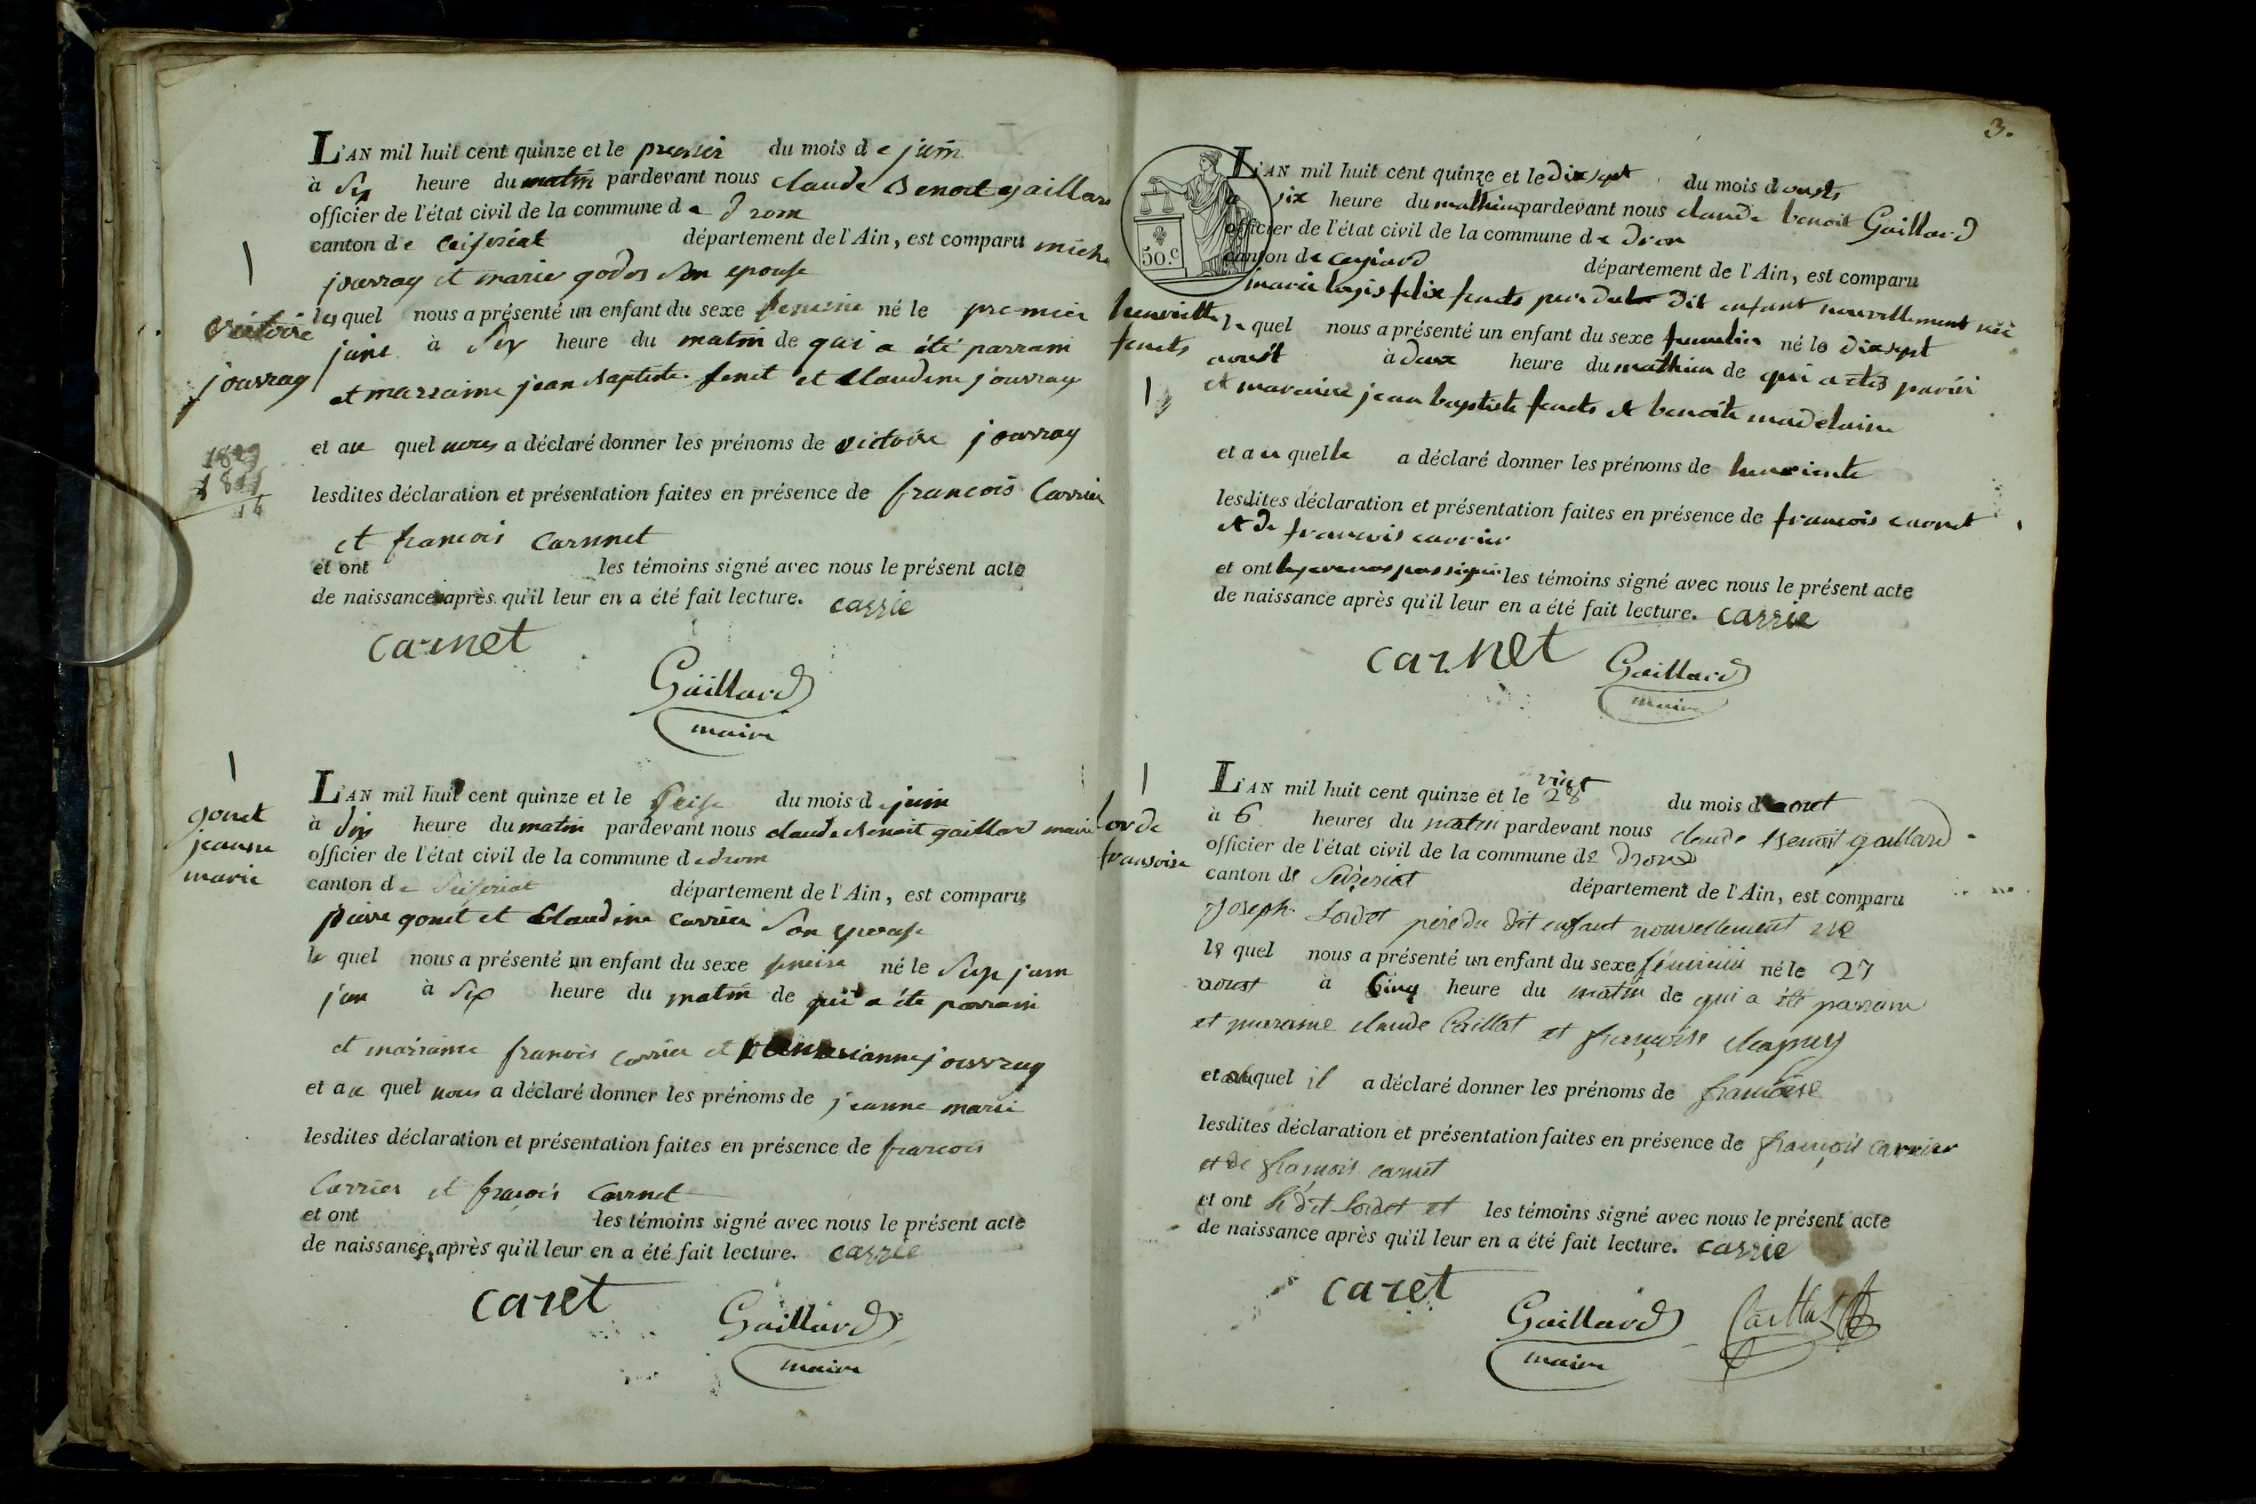 L'AN mil huit cent quinze et le premier du mois de juin
à Six heure du matin pardevant nous claude Benoit gaillard
officier de l'état civil de la commune de drom
canton de Ceiseriat département de l'Ain, est comparu
jouvray et marie godos Son epouse
lesquel nous a présenté un enfant du sexe né le premier
à Six heure du matin de qui a été parrain
et marraine jean Baptiste fenet et Claudine jouvray
victoire
jouvray
et au quel nous a déclaré donner les prénoms de victoire jouvray
1829
lesdites déclaration et présentation faites en présence de francois Carrier
et francois
et ont les témoins signé avec nous le présent acte
de naissance après qu'il leur en a été fait lecture. carrie
carnet
Gaillard
maire
gonet
jeanne
marie
L'AN mil huit cent quinze et le du mois de juin
à heure du matin pardevant nous claude Benoit gaillard maire
officier de l'état civil de la commune de drom
canton de département de l'Ain, est comparu
pierre gonet et Claudine carrier Son epouse
le quel nous a présenté un enfant du sexe né le
à Six heure du matin de qui a été parrain
et marraine francois carrier et jouvray
et au quel nous a déclaré donner les prénoms de jeanne marie
lesdites déclaration et présentation faites en présence de francois
Carrier et françois Carnet
et ont les témoins signé avec nous le présent acte
de naissance, après qu'il leur en a été fait lecture. carrie
caret
Gaillard
maire
3.
50.c
L'AN mil huit cent quinze et le dixsept du mois d'
à six heure du mathin pardevant nous claude benoit Gaillard
officier de l'état civil de la commune de drom
canton de département de l'Ain, est comparu
marie felix père dit enfant nouvellement née
henriette
le quel nous a présenté un enfant du sexe né le dixsept
à deux heure du mathin de qui a
et jean baptiste et benoite madelaine
et au quelle a déclaré donner les prénoms de
lesdites déclaration et présentation faites en présence de francois carnet
et de francois carrier
et ont les témoins signé avec nous le présent acte
de naissance après qu'il leur en a été fait lecture. carrie
carnet
Gaillard
maire
fransoise
L'AN mil huit cent quinze et le vingt 28 du mois d'aout
à 6 heures du matin pardevant nous claude Benoit gaillard
officier de l'état civil de la commune de
canton de département de l'Ain, est comparu
Joseph Lordet père du dit enfant nouvellement né
le quel nous a présenté un enfant du sexe féminin né le 27
aoust à Cinq heure du matin de qui a été parrain
et claude Caillat et françoise
et auquel il a déclaré donner les prénoms de françoise
lesdites déclaration et présentation faites en présence de françois carrier
et de françois carnet
et ont le dit Lordet et les témoins signé avec nous le présent acte
de naissance après qu'il leur en a été fait lecture. carrie
caret
Gaillard
maire
Caillat